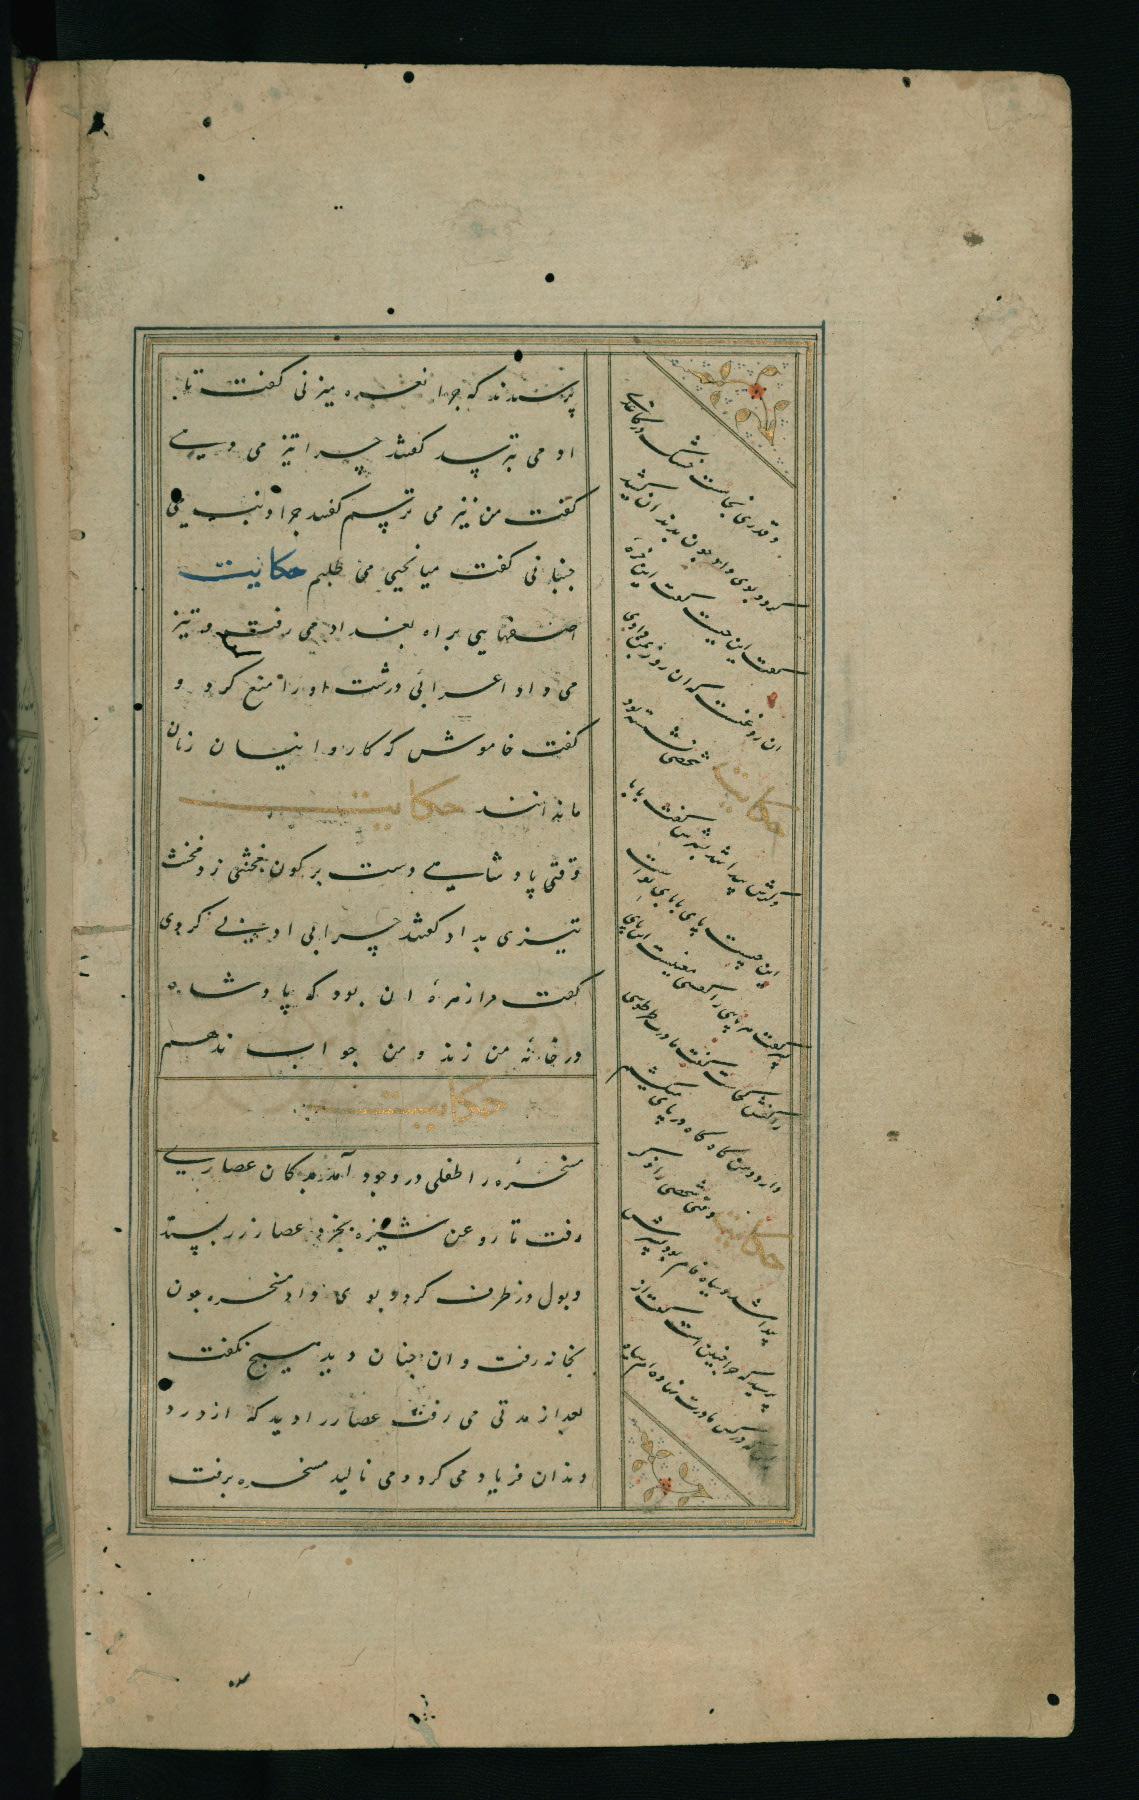 پرسیدند که چرا نعره میزنی گفت تا
او می ترسد گفتند چرا تیز می دهی
گفت من نیز می ترسم گفتند چرا دنب می
جنبانی گفت میانجیی می طلبم حکایت
اصفهانیی براه بغداد می رفت و تیز
می داد اعرابی درشت او را منع کرد و
گفت خاموش که کاروانیان زنان
ما بدانند حکایت
وقتی پادشاهی دست بر کون مخنثی زد مخنث
تیزی بداد گفتند چرا بی ادبی کردی
گفت مرا زهرهٔ آن بود که پادشاه
در خانهٔ من زند و من جواب ندهم
حکایت
مسخرهٔ را طفلی در وجود آمد بدکان عصاری
رفت تا روغن شیره بخرد عصار زر بستد
و بول در ظرف کرد و بوی داد مسخره چون
بخانه رفت و آن چنان دید هیچ نگفت
بعد از مدتی می رفت عصار را دید که از درد
دندان فریاد می کرد و می نالید مسخره برفت
و قدری نجاست خشک در کاغذی
کرد و بوی داد چون بدندان کشید
گفت این چیست گفت این
آن روغنست که آن روز بمن دادی
حکایت شخصی نشسته بود
پیدا شد پسرش گفت بابا
این چیست پای بابای تو است
پسر گفت هر پای را کفشی
را کفش کجاست گفت مادرت
دارد و من گاه گاه در پای میکشم
حکایت وقتی شخصی را
پیدا شد و سیاه فام بود پسرش
پرسید که چرا چنین است گفت از